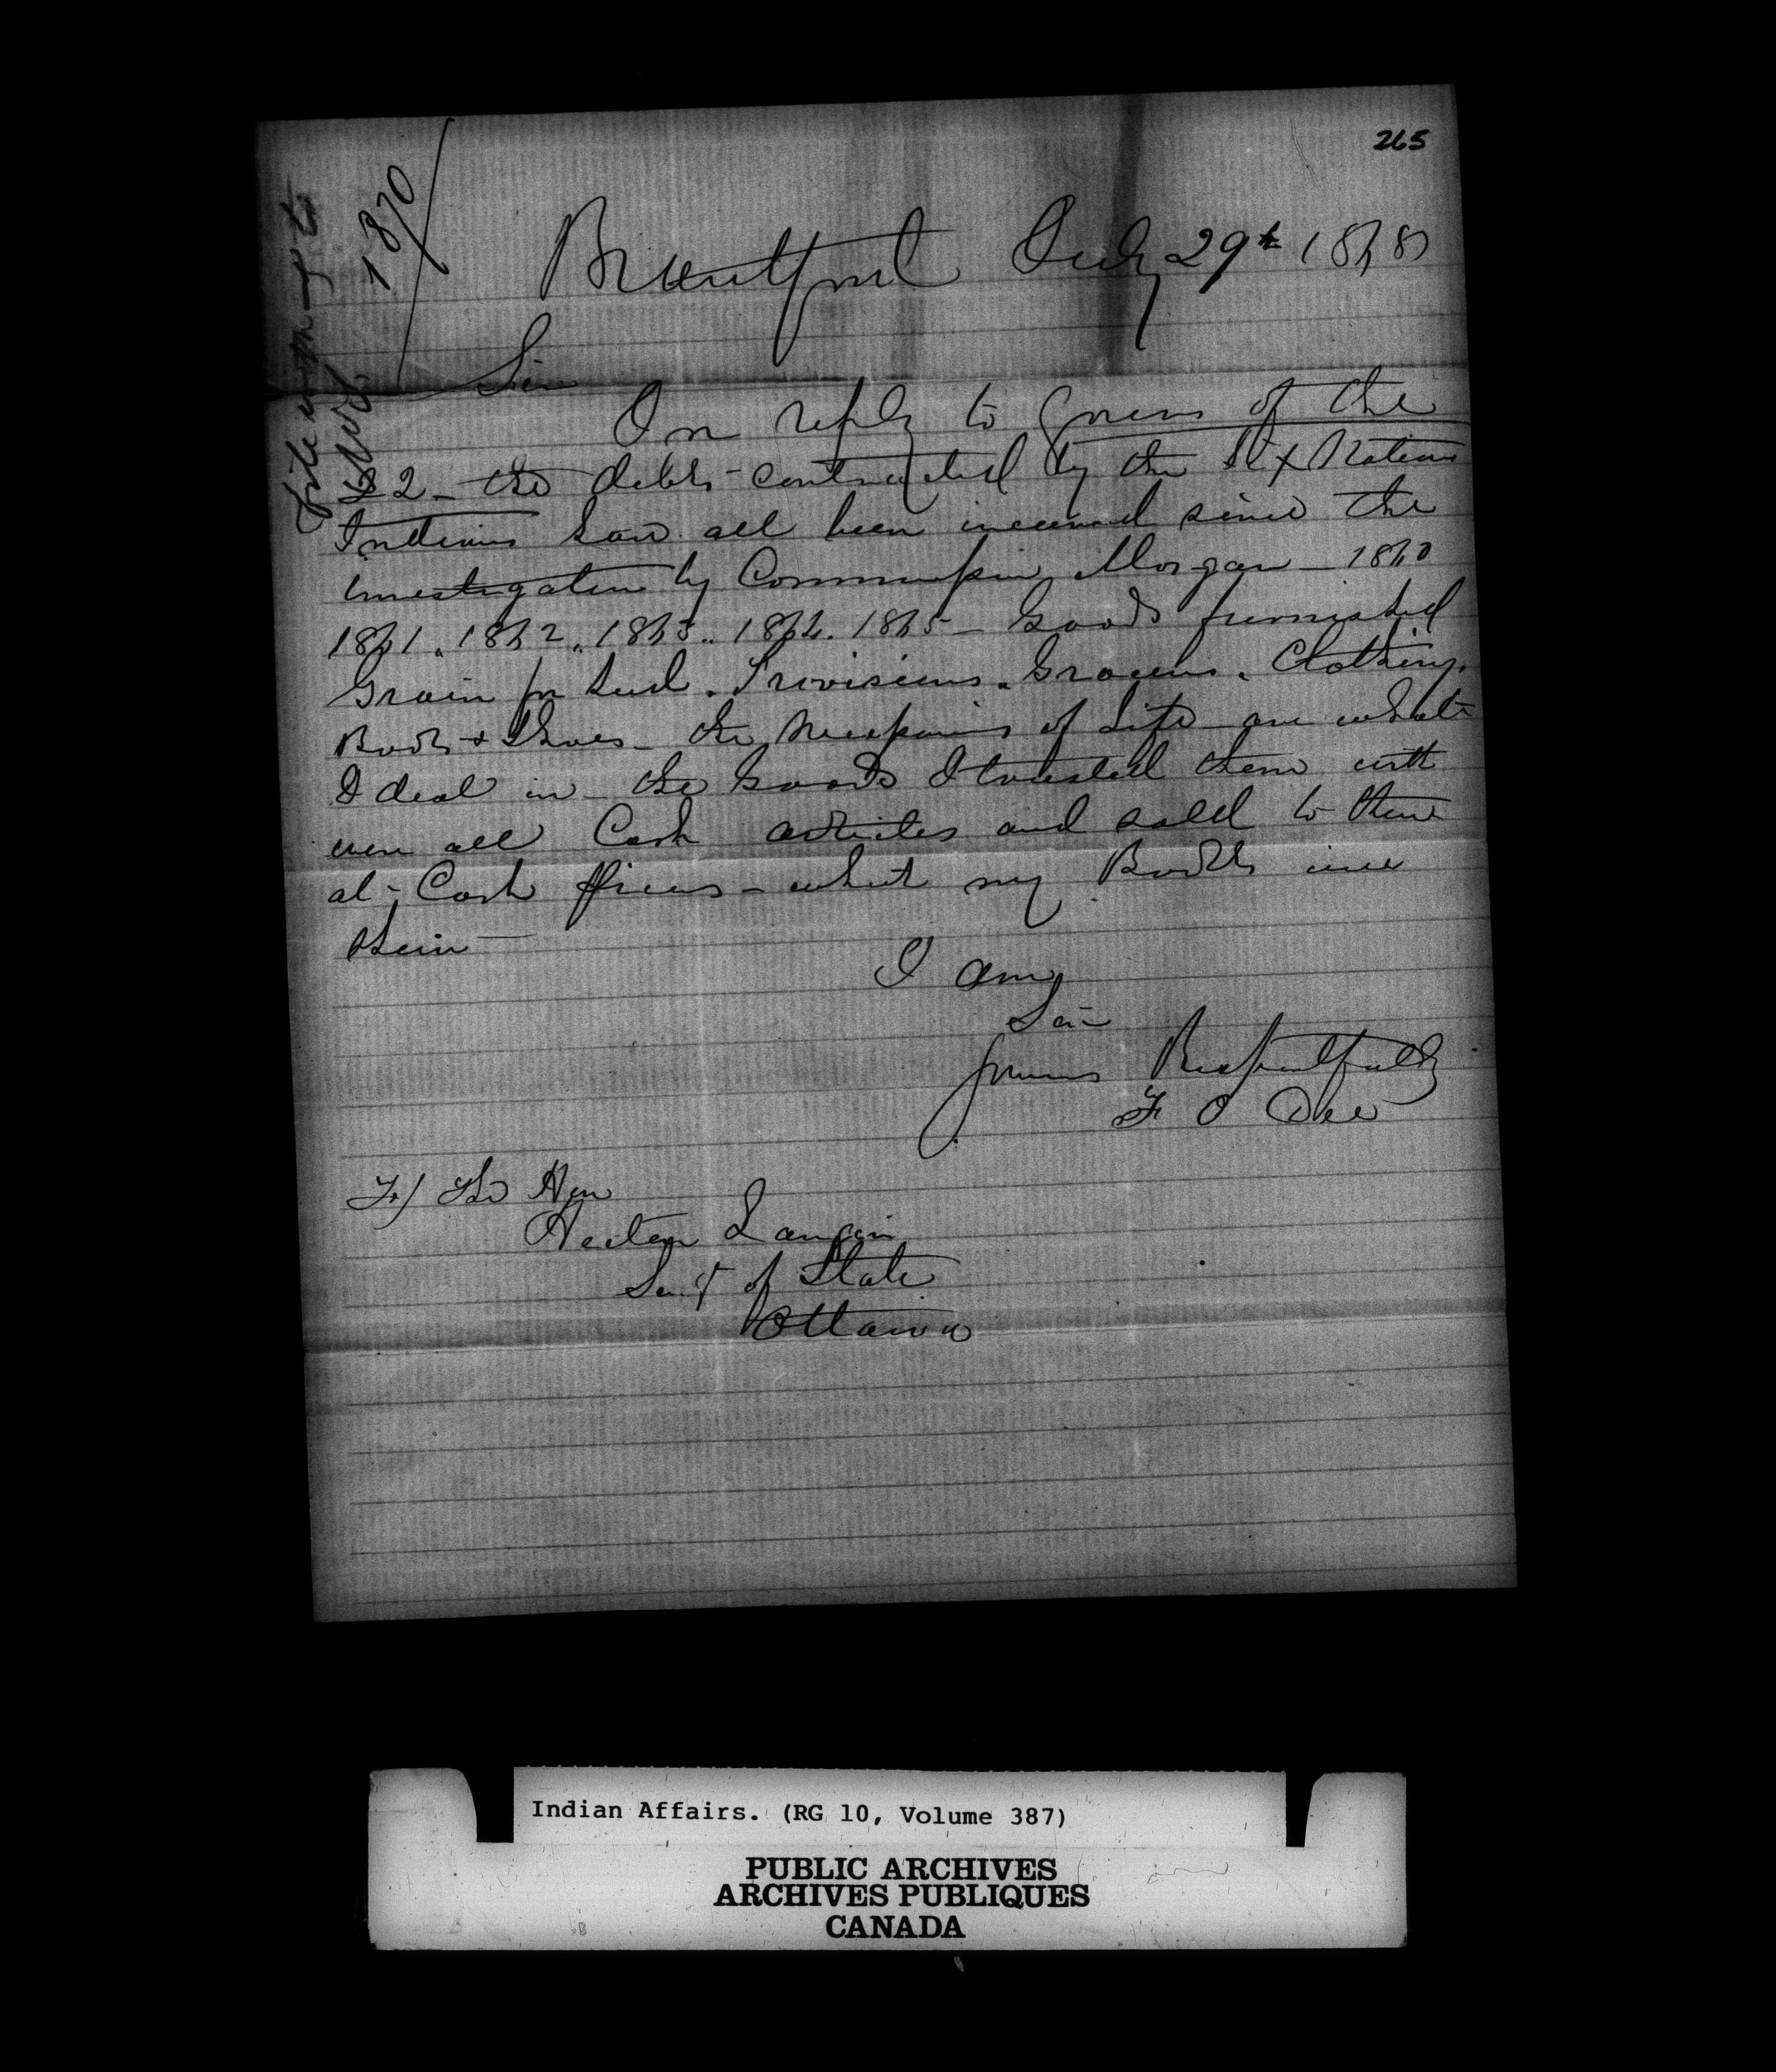 265
1870
Brantford July 29th 1868
Sir
In reply to yours of the
22 - the debts contracted by the Six Nations
Indians have all been incurred since the
investigation by Commission Morgan - 1860
1861 " 1862 " 1863 " 1864 " 1865 - Goods furnished
Grain for Seed. Provisions. Groceries. Clothing.
Boots & Shoes - the necessaries of Life are what
I deal in - the Goods I trusted them with
were all Cash articles and sold to them
at Cash prices - what my Books
I am
Sir
yours Respectfully
F O Dee
To/ The Hon
Hector Langevin
Secy of State
Ottawa
Indian Affairs. (RG 10, Volume 387)
PUBLIC ARCHIVES
ARCHIVES PUBLIQUES
CANADA